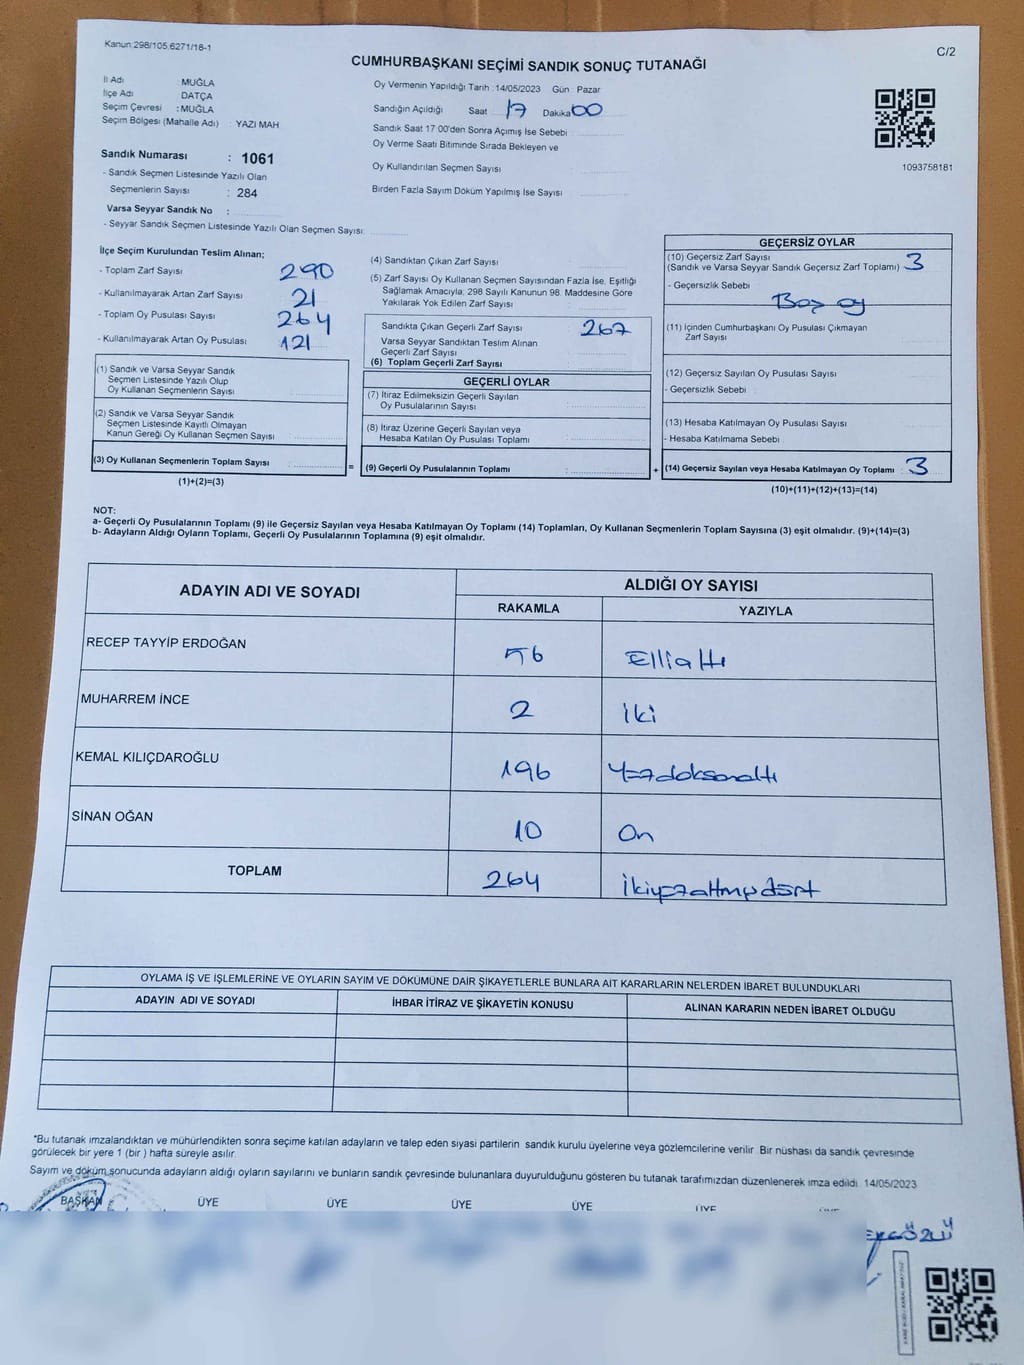 Kanun:298/105.6271/18-1
C/2
CUMHURBAŞKANI SEÇİMİ SANDIK SONUÇ TUTANAĞI
İl Adı : MUĞLA
İlçe Adı : DATÇA
Seçim Çevresi : MUĞLA
Seçim Bölgesi (Mahalle Adı) : YAZI MAH
Sandık Numarası : 1061
- Sandık Seçmen Listesinde Yazılı Olan
Seçmenlerin Sayısı : 284
Varsa Seyyar Sandık No :
- Seyyar Sandık Seçmen Listesinde Yazılı Olan Seçmen Sayısı:
Oy Vermenin Yapıldığı Tarih :14/05/2023 Gün Pazar
Sandığın Açıldığı Saat 17 Dakika 00
Sandık Saat 17 00'den Sonra Açımış İse Sebebi
Oy Verme Saati Bitiminde Sırada Bekleyen ve
Oy Kullandırılan Seçmen Sayısı
Birden Fazla Sayım Döküm Yapılmış İse Sayısı
1093758181
İlçe Seçim Kurulundan Teslim Alınan;
- Toplam Zarf Sayısı 290
- Kullanılmayarak Artan Zarf Sayısı 21
- Toplam Oy Pusulası Sayısı 264
- Kullanılmayarak Artan Oy Pusulası 121
(1) Sandık ve Varsa Seyyar Sandık
Seçmen Listesinde Yazılı Olup
Oy Kullanan Seçmenlerin Sayısı
(2) Sandık ve Varsa Seyyar Sandık
Seçmen Listesinde Kayıtlı Olmayan
Kanun Gereği Oy Kullanan Seçmen Sayısı
(3) Oy Kullanan Seçmenlerin Toplam Sayısı :
(1)+(2)=(3)
=
(4) Sandıktan Çıkan Zarf Sayısı
(5) Zarf Sayısı Oy Kullanan Seçmen Sayısından Fazla İse, Eşitliği
Sağlamak Amacıyla, 298 Sayılı Kanunun 98. Maddesine Göre
Yakılarak Yok Edilen Zarf Sayısı
Sandıkta Çıkan Geçerli Zarf Sayısı 267
Varsa Seyyar Sandıktan Teslim Alınan
Geçerli Zarf Sayısı
(6) Toplam Geçerli Zarf Sayısı
GEÇERLİ OYLAR
(7) İtiraz Edilmeksizin Geçerli Sayılan
Oy Pusulalarının Sayısı
(8) İtiraz Üzerine Geçerli Sayılan veya
Hesaba Katılan Oy Pusulası Toplamı
(9) Geçerli Oy Pusulalarının Toplamı :
+
GEÇERSİZ OYLAR
(10) Geçersiz Zarf Sayısı 3
(Sandık ve Varsa Seyyar Sandık Geçersiz Zarf Toplamı)
- Geçersizlik Sebebi
Boş oy
(11) İçinden Cumhurbaşkanı Oy Pusulası Çıkmayan
Zarf Sayısı
(12) Geçersiz Sayılan Oy Pusulası Sayısı
- Geçersizlik Sebebi
(13) Hesaba Katılmayan Oy Pusulası Sayısı
- Hesaba Katılmama Sebebi
(14) Geçersiz Sayılan veya Hesaba Katılmayan Oy Toplamı 3
(10)+(11)+(12)+(13)=(14)
NOT:
a- Geçerli Oy Pusulalarının Toplamı (9) ile Geçersiz Sayılan veya Hesaba Katılmayan Oy Toplamı (14) Toplamları, Oy Kullanan Seçmenlerin Toplam Sayısına (3) eşit olmalıdır. (9)+(14)=(3)
b- Adayların Aldığı Oyların Toplamı, Geçerli Oy Pusulalarının Toplamına (9) eşit olmalıdır.
ADAYIN ADI VE SOYADI
ALDIĞI OY SAYISI
RAKAMLA YAZIYLA
RECEP TAYYİP ERDOĞAN 56 Elli altı
MUHARREM İNCE 2 iki
KEMAL KILIÇDAROĞLU 196 Yüzdoksanaltı
SİNAN OĞAN 10 On
TOPLAM 264 İkiyüzaltmışdört
OYLAMA İŞ VE İŞLEMLERİNE VE OYLARIN SAYIM VE DÖKÜMÜNE DAİR ŞİKAYETLERLE BUNLARA AİT KARARLARIN NELERDEN İBARET BULUNDUKLARI
ADAYIN ADI VE SOYADI İHBAR İTİRAZ VE ŞİKAYETİN KONUSU ALINAN KARARIN NEDEN İBARET OLDUĞU
*Bu tutanak imzalandıktan ve mühürlendikten sonra seçime katılan adayların ve talep eden siyasi partilerin sandık kurulu üyelerine veya gözlemcilerine verilir. Bir nüshası da sandık çevresinde
görülecek bir yere 1 (bir ) hafta süreyle asılır.
Sayım ve döküm sonucunda adayların aldığı oyların sayılarını ve bunların sandık çevresinde bulunanlara duyurulduğunu gösteren bu tutanak tarafımızdan düzenlenerek imza edildi. 14/05/2023
BAŞKAN ÜYE ÜYE ÜYE ÜYE ÜYE